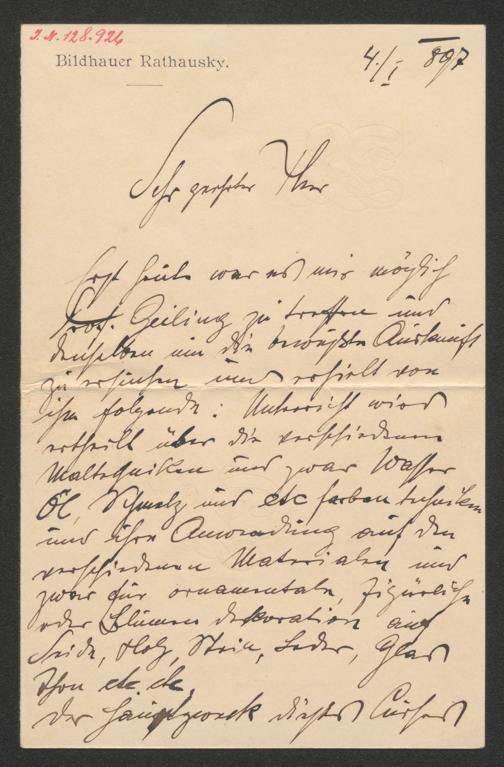 J.N. 128.926
Bildhauer Rathausky.
4./I 897
Sehr geehrter Herr
Erst heute war es mir möglich
Prof. Geiling zu treffen und
denselben um die bewußte Auskunft
zu ersuchen und erhielt von
ihm folgende: Unterricht wird
ertheilt über die verschiedenen
Maltechniken und zwar Wasser
Öl, Schmelz und etc farben techniken
und ihre Anwendung auf den
verschiedenen Materialen und
zwar für ornamentale, figürliche
oder Blumen dekoration auf
Seide, Holz, Stein, Leder, Glas
Thon etc. etc.
Der Hauptzweck dieses Curses